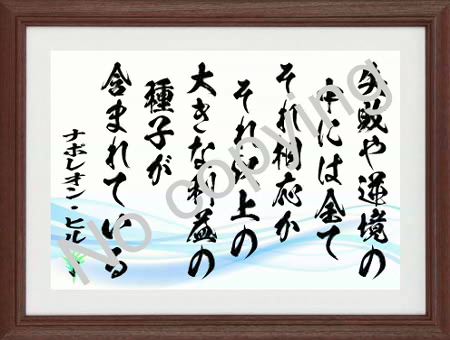 失敗や逆境の
中には全て
それ相応か
それ以上の
大きな利益の
種子が
含まれている
ナポレオン・ヒル
No copying